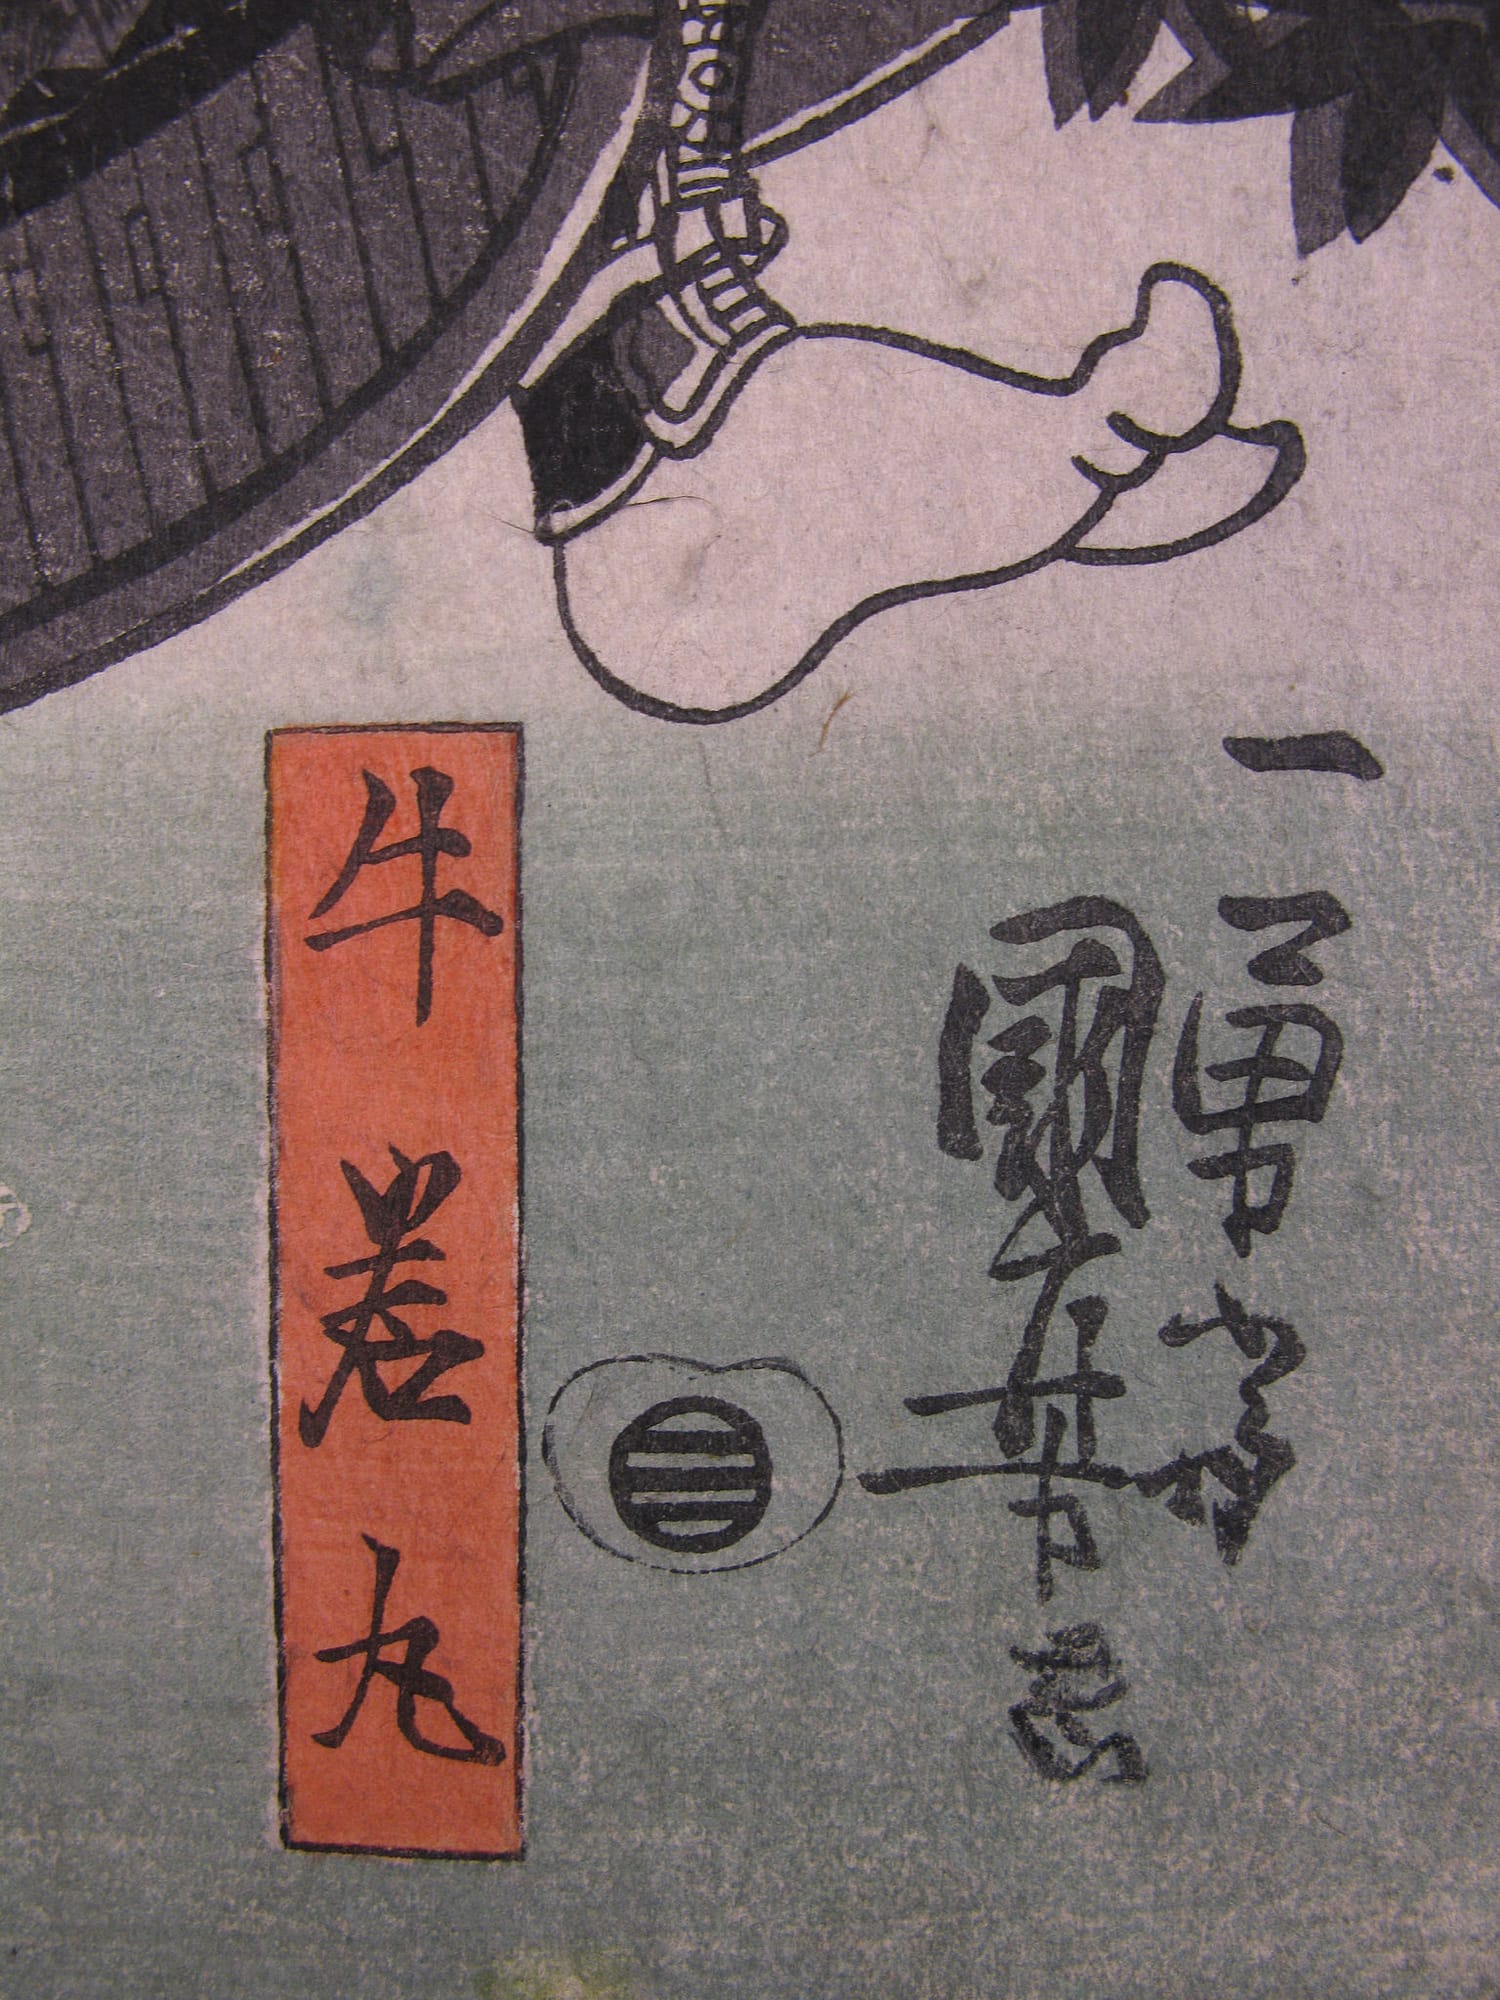 一勇齋
國芳画
牛若丸